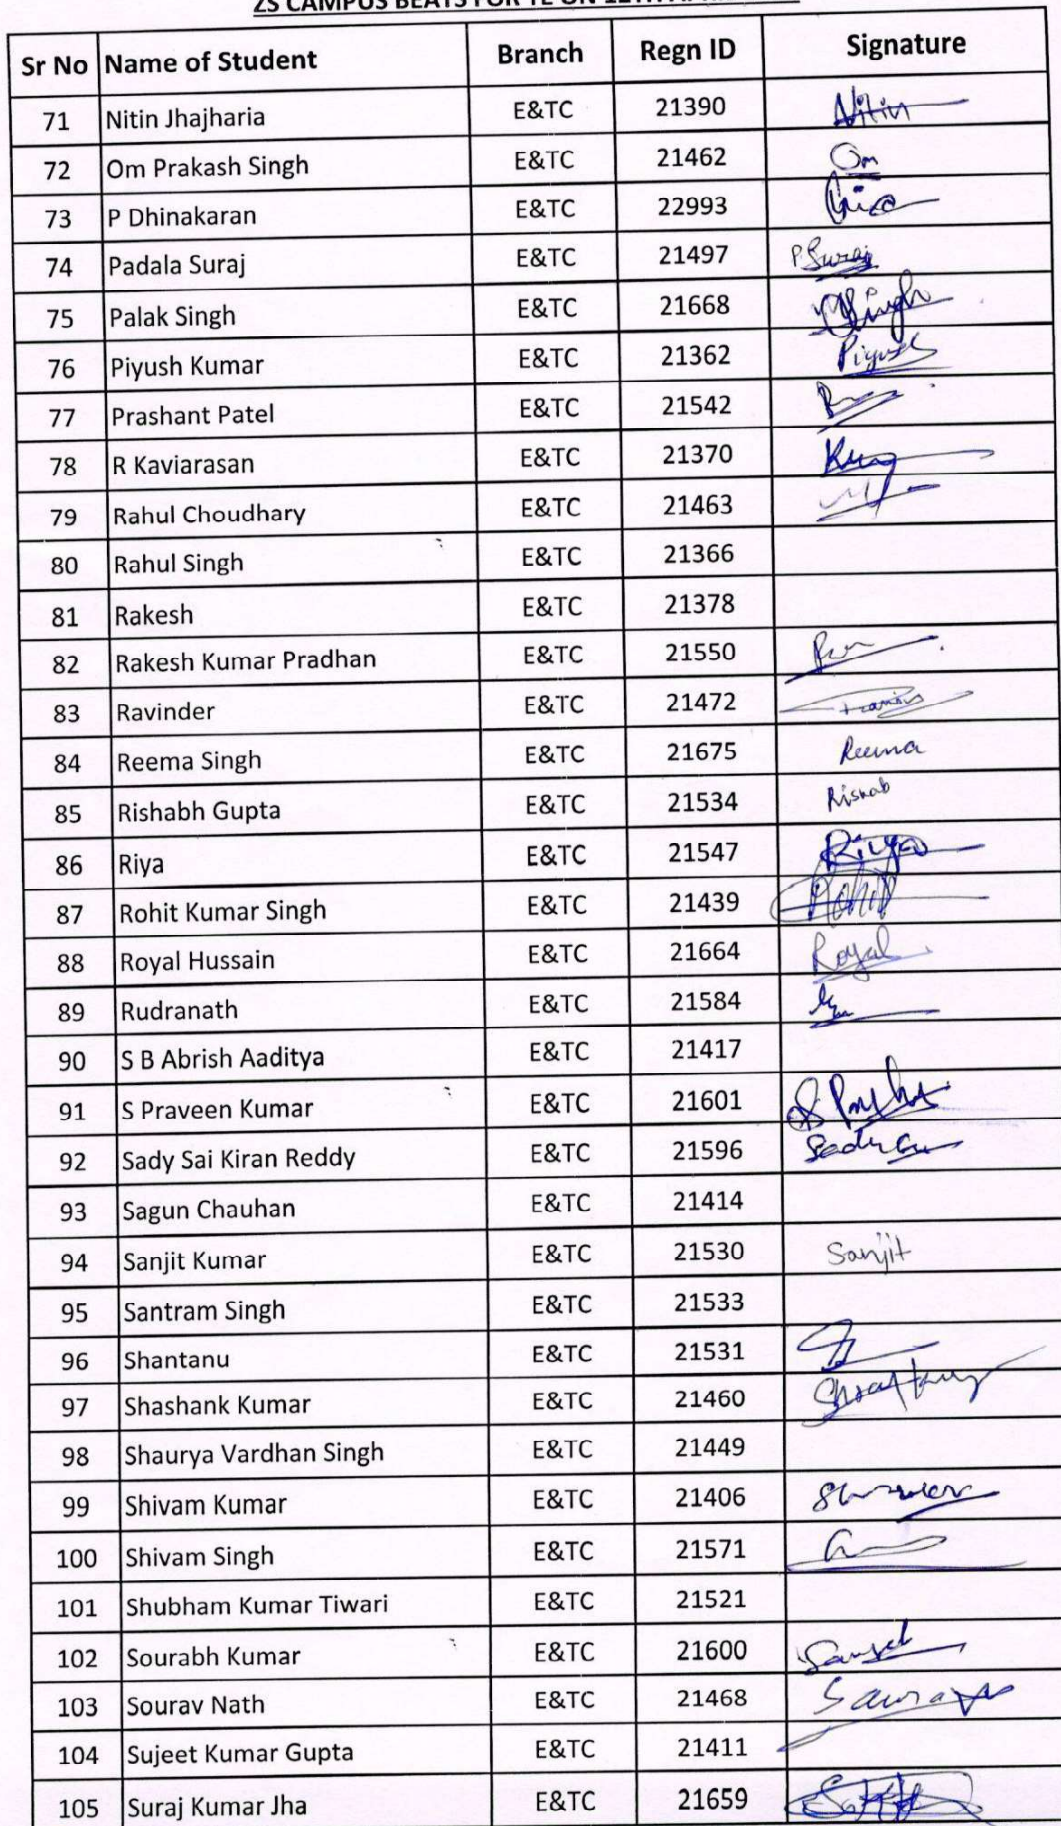 ZS CAMPUS BEATS FOR TE ON 12TH
Sr No Name of Student Branch Regn ID Signature
71 Nitin Jhajharia E&TC 21390 Nitin
72 Om Prakash Singh E&TC 21462 Om
73 P Dhinakaran E&TC 22993
74 Padala Suraj E&TC 21497 P. Suraj
75 Palak Singh E&TC 21668 PSingh
76 Piyush Kumar E&TC 21362 Piyush
77 Prashant Patel E&TC 21542
78 R Kaviarasan E&TC 21370
79 Rahul Choudhary E&TC 21463
80 Rahul Singh E&TC 21366
81 Rakesh E&TC 21378
82 Rakesh Kumar Pradhan E&TC 21550
83 Ravinder E&TC 21472
84 Reema Singh E&TC 21675 Reema
85 Rishabh Gupta E&TC 21534 Risnab
86 Riya E&TC 21547 Riya
87 Rohit Kumar Singh E&TC 21439 Rohit
88 Royal Hussain E&TC 21664 Royal
89 Rudranath E&TC 21584
90 S B Abrish Aaditya E&TC 21417
91 S Praveen Kumar E&TC 21601
92 Sady Sai Kiran Reddy E&TC 21596
93 Sagun Chauhan E&TC 21414
94 Sanjit Kumar E&TC 21530 Sanjit
95 Santram Singh E&TC 21533
96 Shantanu E&TC 21531
97 Shashank Kumar E&TC 21460
98 Shaurya Vardhan Singh E&TC 21449
99 Shivam Kumar E&TC 21406
100 Shivam Singh E&TC 21571
101 Shubham Kumar Tiwari E&TC 21521
102 Sourabh Kumar E&TC 21600
103 Sourav Nath E&TC 21468 Saurav
104 Sujeet Kumar Gupta E&TC 21411
105 Suraj Kumar Jha E&TC 21659